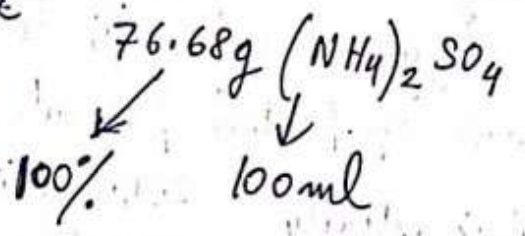 76.68g (NH4)2 SO4
100% 100ml